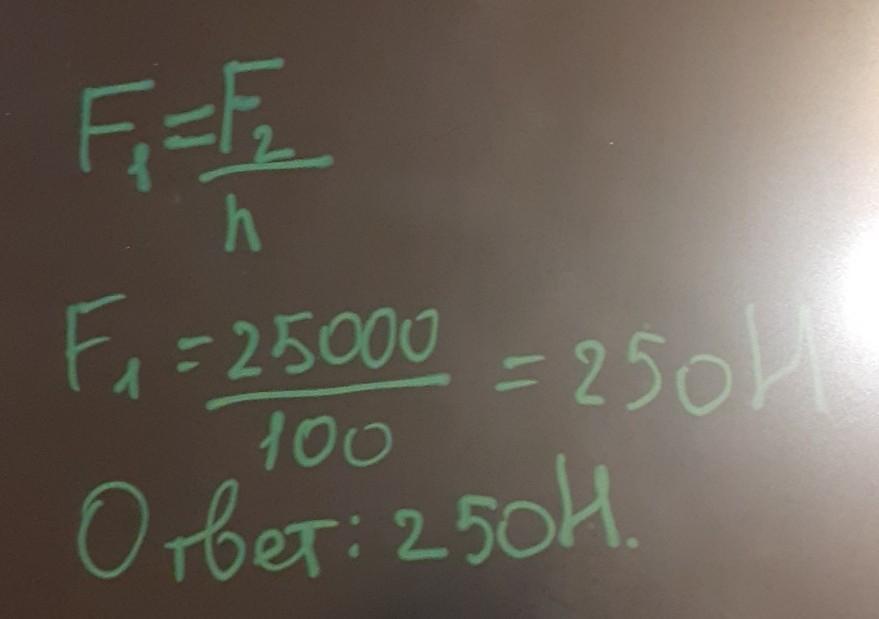 F₁ = F₂ / n
F₁ = 25000 / 100 = 250 Н
Ответ: 250 Н.